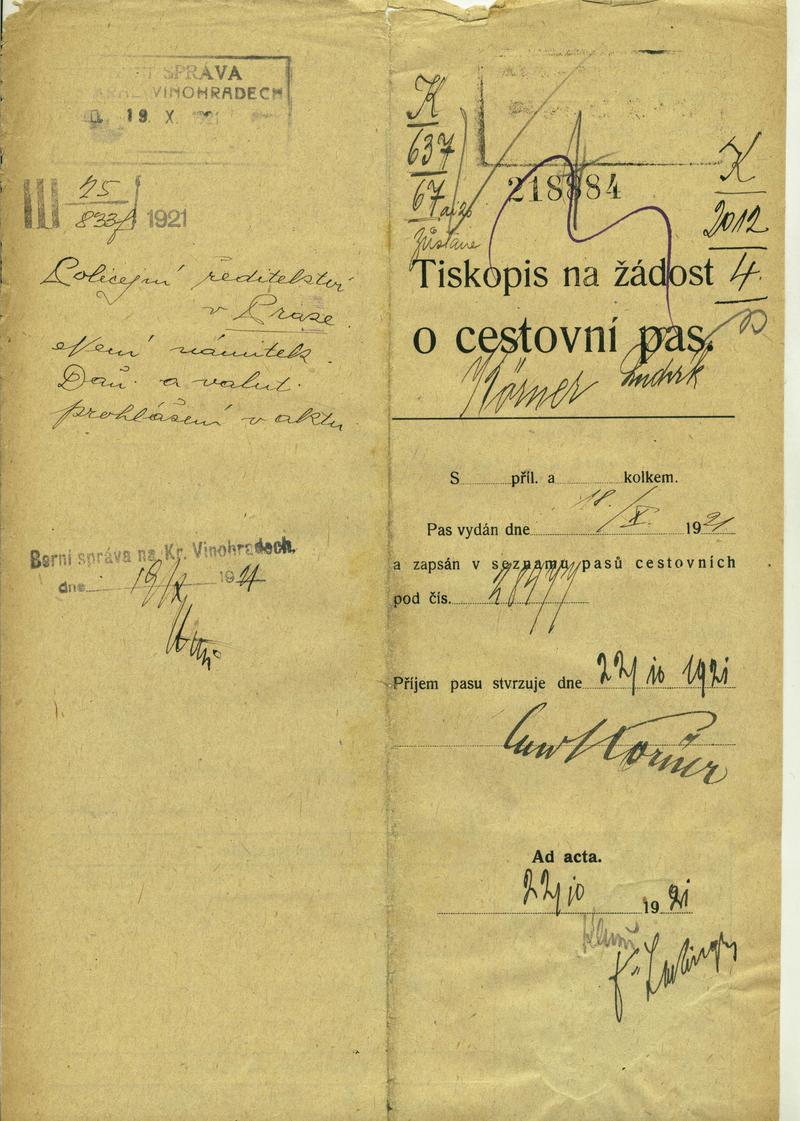 SPRÁVA
VINOHRADECH
19 X
III 25
833/ 1921
Policejní ředitelství
v Praze.
Není námitek.
Daň. a valut.
prohlášení v aktu
Berní správa na Kr. Vinohradech.
dne 19/X 1921
K
637
67
zůstane
218884
K
2012
4
Tiskopis na žádost
o cestovní pas.
Körner Ludvík
S příl. a kolkem.
Pas vydán dne 18/X. 1921
a zapsán v seznamu pasů cestovních
pod čís.
Příjem pasu stvrzuje dne 22/10 1921
Körner
Ad acta.
22/10 1921